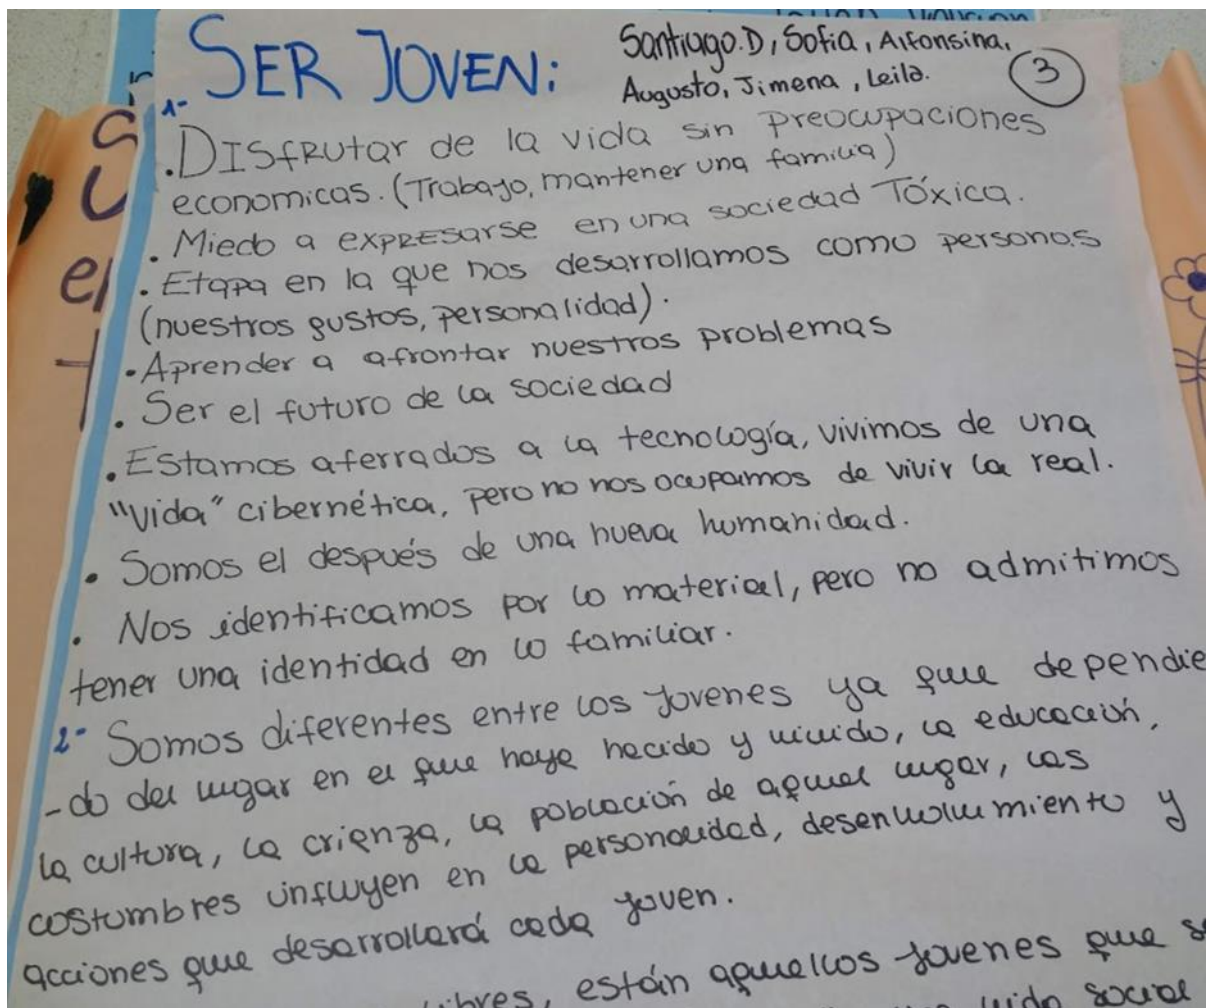 SER JOVEN:
Santiago.D, Sofia, Alfonsina,
Augusto, Jimena, Leila.
3
1-
.Disfrutar de la vida sin preocupaciones
economicas. (Trabajo, mantener una familia)
. Miedo a expresarse en una sociedad Tóxica.
. Etapa en la que nos desarrollamos como personas
(nuestros gustos, personalidad).
. Aprender a afrontar nuestros problemas
. Ser el futuro de la sociedad
. Estamos aferrados a la tecnología, vivimos de una
"vida" cibernética, pero no nos ocupamos de vivir la real.
. Somos el después de una nueva humanidad.
. Nos identificamos por lo material, pero no admitimos
tener una identidad en lo familiar.
2- Somos diferentes entre los jovenes ya que dependie
-do del lugar en el que haya nacido y vivido, la educación,
la cultura, la crienza, la población de aquel lugar, las
costumbres influyen en la personalidad, desenvolvimiento y
acciones que desarrollará cada joven.
están aquellos jovenes que
social